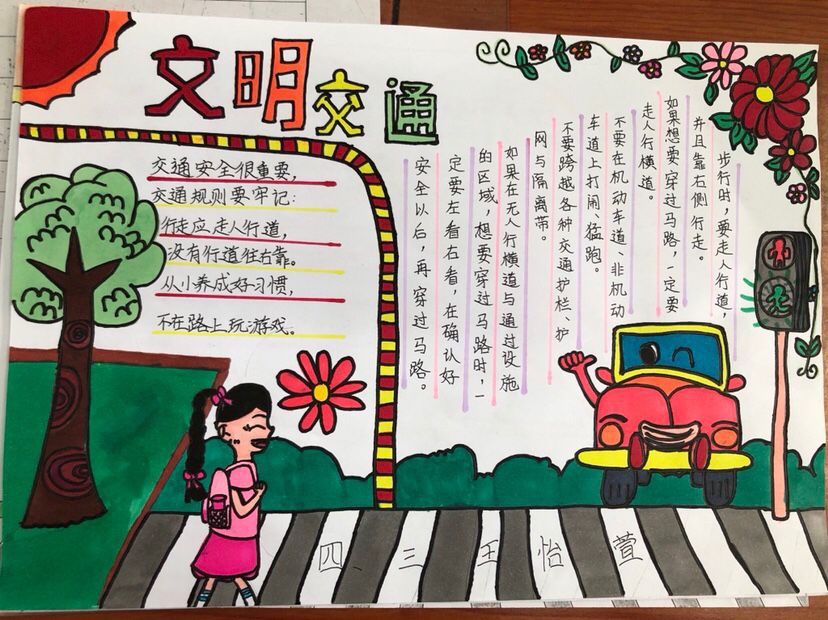 文明交通
交通安全很重要，
交通规则要牢记：
行走应走人行道，
没有行道往右靠。
从小养成好习惯，
不在路上玩游戏。
步行时，要走人行道，
并且靠右侧行走。
如果想要穿过马路，一定要
走人行横道。
不要在机动车道、非机动
车道上打闹、猛跑。
不要跨越各种交通护栏、护
网与隔离带。
如果在无人行横道与通过设施
的区域，想要穿过马路时，一
定要左看右看，在确认好
安全以后，再穿过马路。
四、三王怡萱